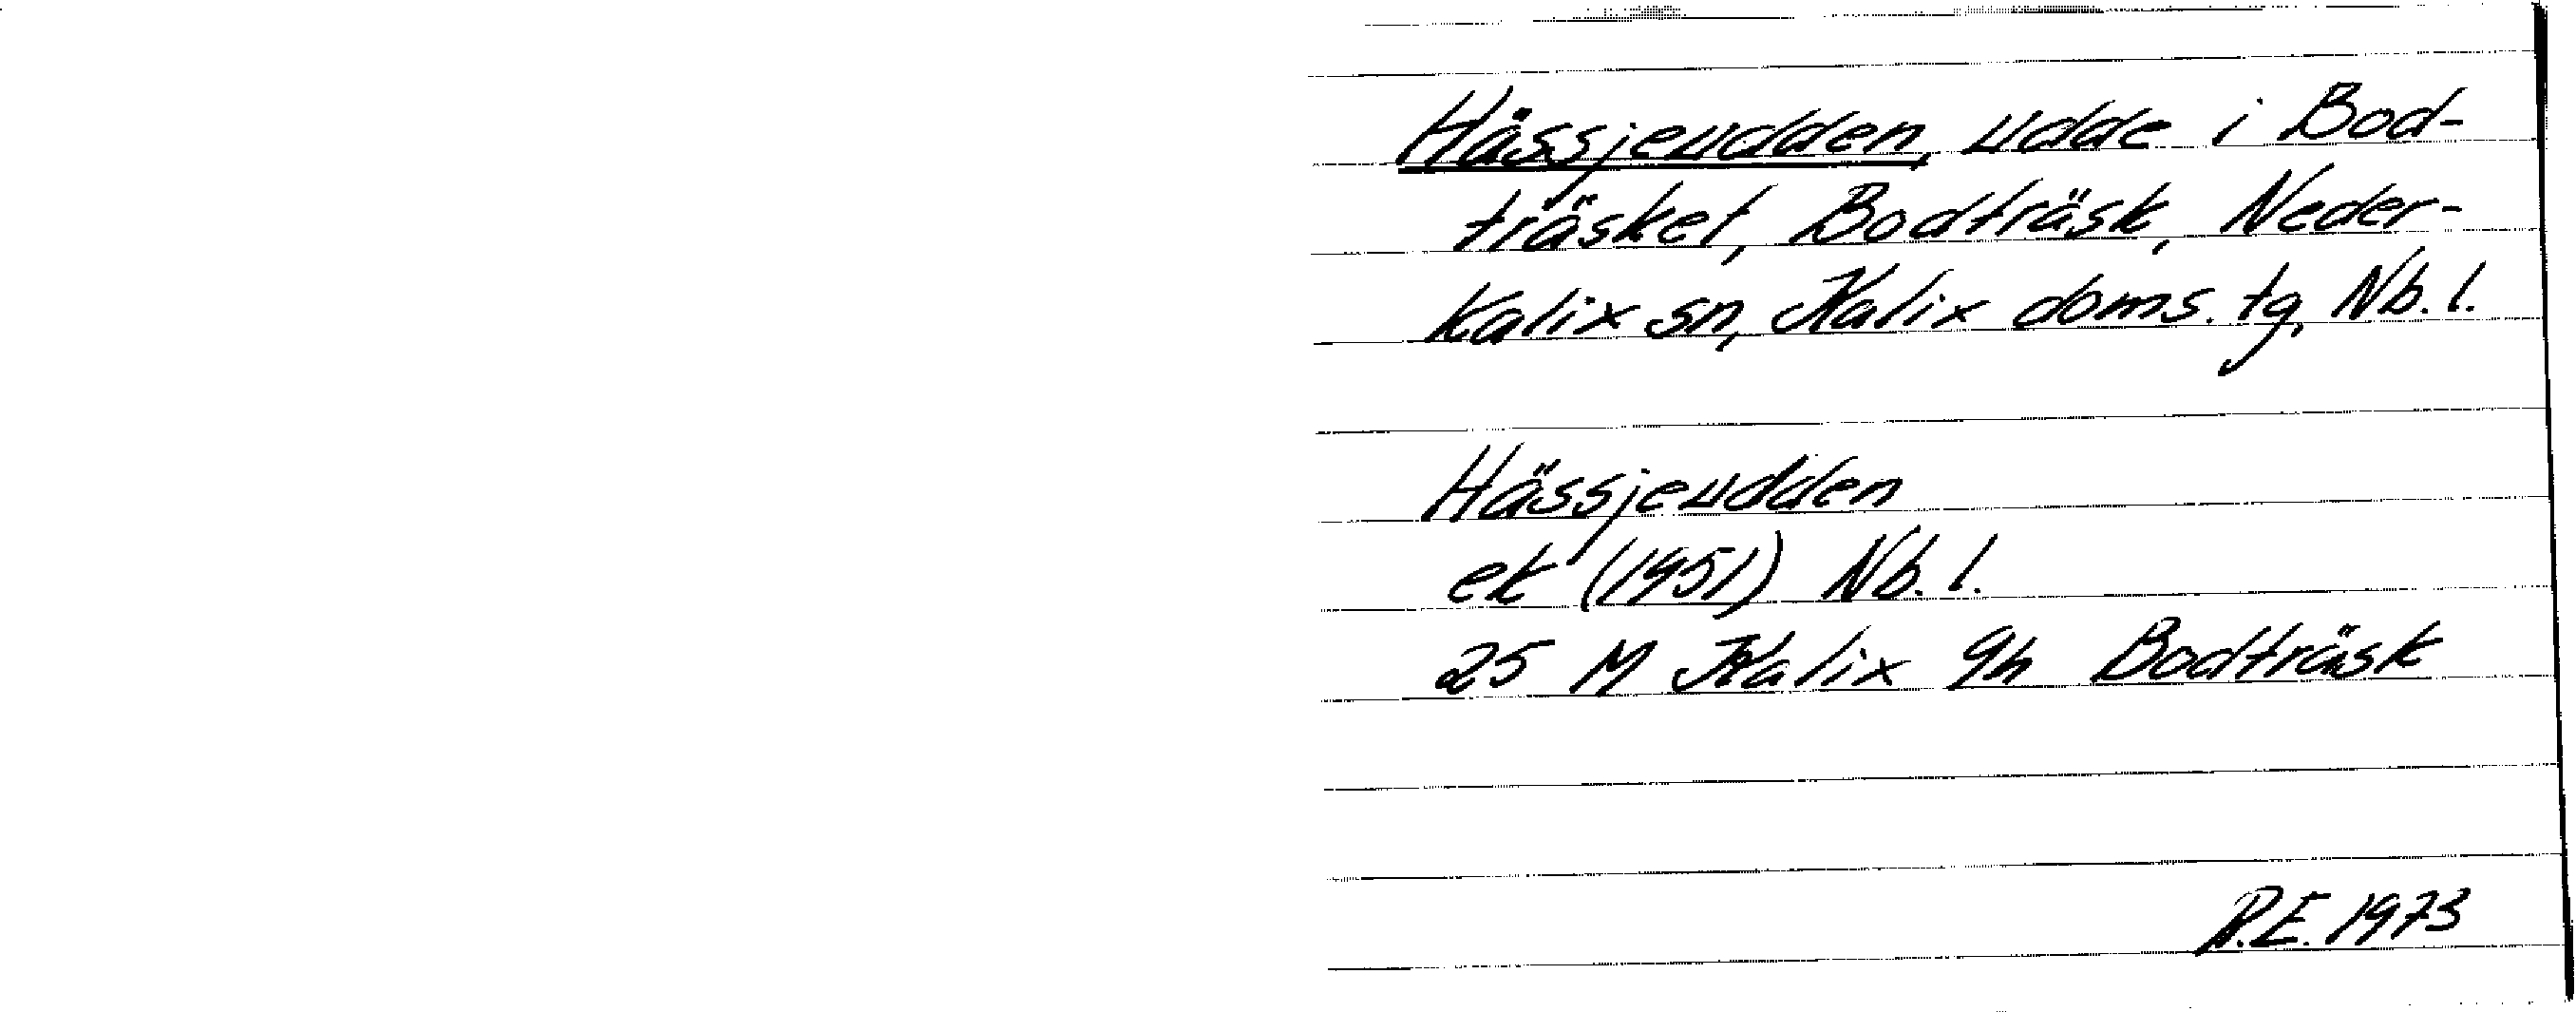 Hässjeudden, udde i Bod-
träsket, Bodträsk, Neder-
kalix sn, Kalix doms. tg, Nb. l.
Hässjeudden
ek (1951) Nb. l.
25 M Kalix 9h Bodträsk
R.E. 1973